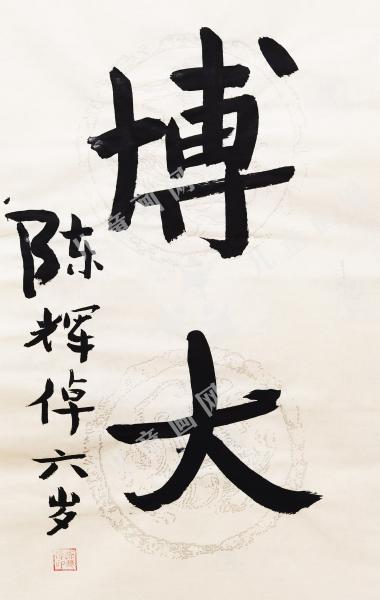 博大
陈辉倬六岁